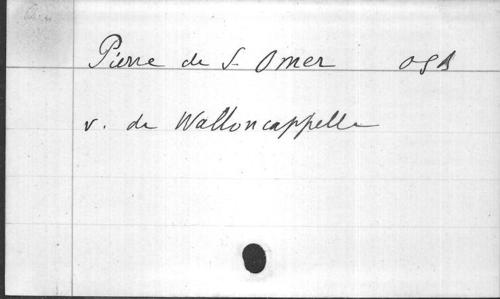 Pierre de S. Omer OSB
v. de Walloncappelle